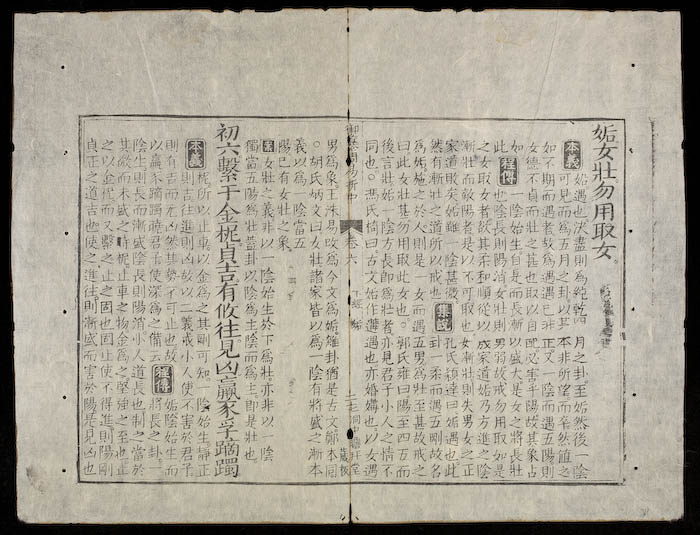 姤女壯勿用取女
本義 姤遇也決盡則為純乾四月之卦至姤然後一陰
可見而為五月之卦以其本非所望而卒然值之
如不期而遇者故為遇遇已非正又一陰而遇五陽則
女德不貞而壯之甚也取以自配必害乎陽故其象占
如此 程傳 一陰始生自是而長漸以盛大是女之將長壯
也陰長則陽消女壯則男弱故戒勿用取如是
之女取女者欲其柔和順從以成家道姤乃方進之陰
漸壯而敵陽者是以不可取也女漸壯則失男女之正
家道敗矣姤雖一陰甚微
然有漸壯之道所以戒也 集說 孔氏穎達曰姤遇也此
卦一柔而遇五剛故名
為姤施之於人則是一女而遇五男為壯至甚故戒之
曰此女壯甚勿用取此女也。郭氏雍曰陽至四五而
後言壯姤一陰方長即為壯者亦見君子小人之情不
同也。馮氏椅曰古文姤作遘遇也亦婚媾也以女遇
御纂周易折中 卷六 下經 姤
男為象王洙易改為今文為姤雜卦猶是古文鄭本同
。胡氏炳文曰女壯諸家皆以為一陰有將盛之漸本
義以為一陰當五
陽已有女壯之象
案 女壯之義非以一陰始生於下為壯亦非以一陰
獨當五陽為壯蓋卦以陰為主陰而為主即是壯也
初六繫于金柅貞吉有攸往見凶羸豕孚蹢躅
本義 柅所以止車以金為之其剛可知一陰始生靜正
則吉往進則凶故以二義戒小人使不害於君子
則有吉而无凶然其勢不可止也故
以羸豕蹢躅曉君子使深為之備云 程傳 姤陰始生而
將長之卦一
陰生則長而漸盛陰長則陽消小人道長也制之當於
其微而未盛之時柅止車之物金為之堅強之至也止
之以金柅而又繫之止之固也固止使不得進則陽剛
貞正之道吉也使之進往則漸盛而害於陽是見凶也